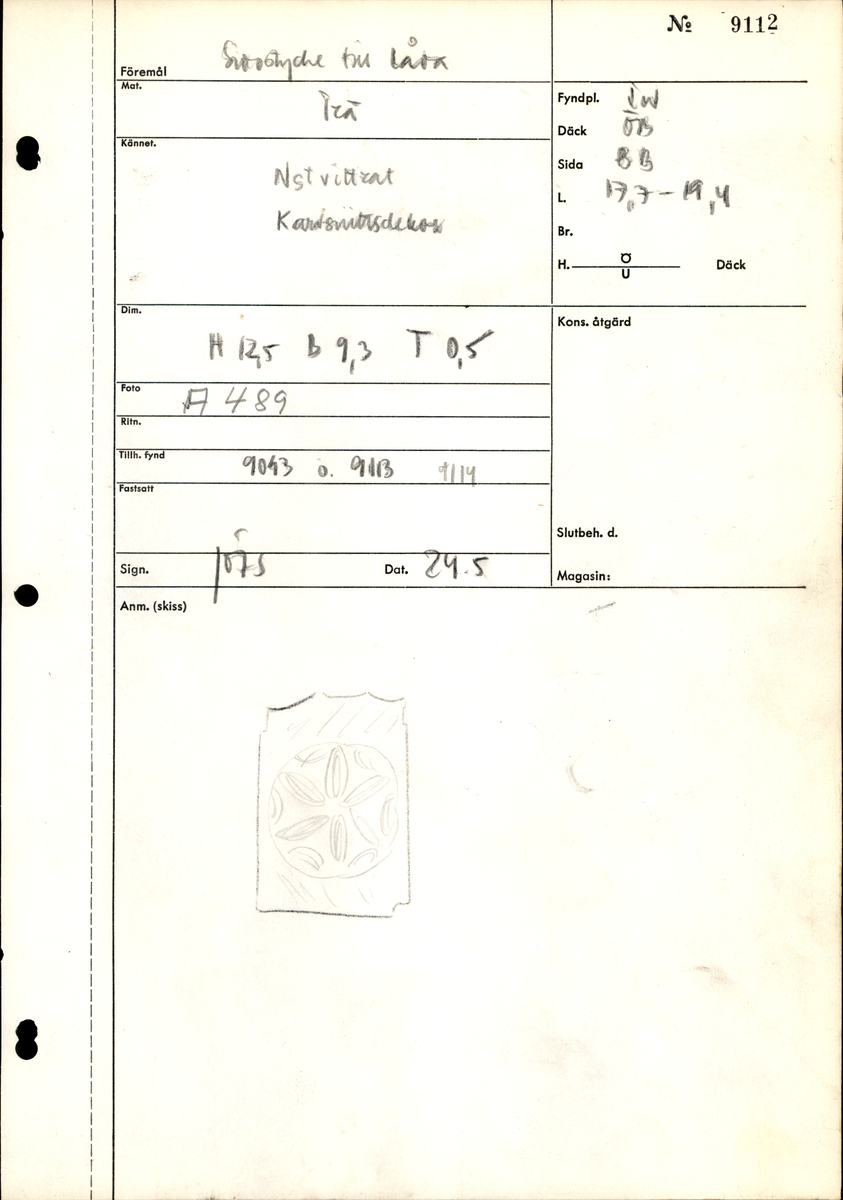 № 9112
Föremål Sidostycke till låda
Mat. Trä
Fyndpl. Inv
Däck ÖB
Kännet. Ngt vittrat
Karvsnittsdekor
Sida BB
L. 17,7 – 19,4
Br.
H. Ö U Däck
Dim. H 12,5 B 9,3 T 0,5
Kons. åtgärd
Foto A 489
Ritn.
Tillh. fynd 9043 o. 9113 9114
Fastsatt
Slutbeh. d.
Sign. Dat. 24.5
Magasin:
Anm. (skiss)